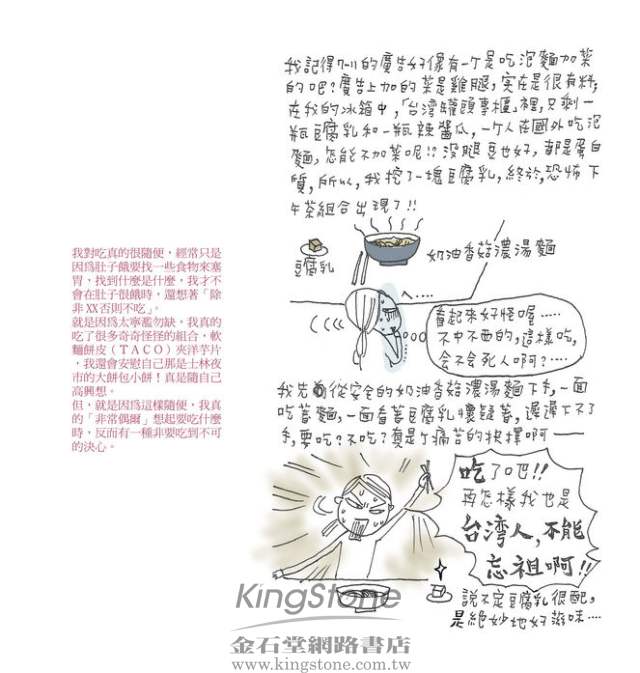 我對吃真的很隨便，經常只是
因為肚子餓要找一些食物來塞
胃、找到什麼是什麼，我才不
會在肚子很餓時，還想著「除
非XX否則不吃」。
就是因為太寧濫勿缺，我真的
吃了很多奇奇怪怪的組合，軟
麵餅皮（TACO）夾洋芋片
，我還會安慰自己那是士林夜
市的大餅包小餅！真是隨自己
高興想。
但，就是因為這樣隨便，我真
的「非常偶爾」想起要吃什麼
時，反而有一種非要吃到不可
的決心。
我記得7-11的廣告好像有一ケ是吃泡麵加菜
的吧？廣告上加的菜是雞腿，實在是很有料，
在我的冰箱中，「台湾罐頭專櫃」裡，只剩一
瓶豆腐乳和一瓶辣醬瓜，一ケ人在國外吃泡
麵，怎能不加菜呢!! 沒腿豆也好，都是蛋白
質，所以，我挖了一塊豆腐乳，終於，恐怖下
午茶組合出現了!!
豆腐乳
奶油香菇濃湯麵
看起來好怪喔……
不中不西的，這樣吃，
会不会死人啊？…
我先從安全的奶油香菇濃湯麵下手，一面
吃著麵，一面看著豆腐乳懷疑著，遲遲下不了
手，要吃？不吃？真是ケ痛苦的抉擇啊——
吃了吧!!
再怎樣我也是
台湾人，不能
忘祖啊!!
說不定豆腐乳很配，
是絕妙地好滋味…
KingStone
金石堂網路書店
www.kingstone.com.tw